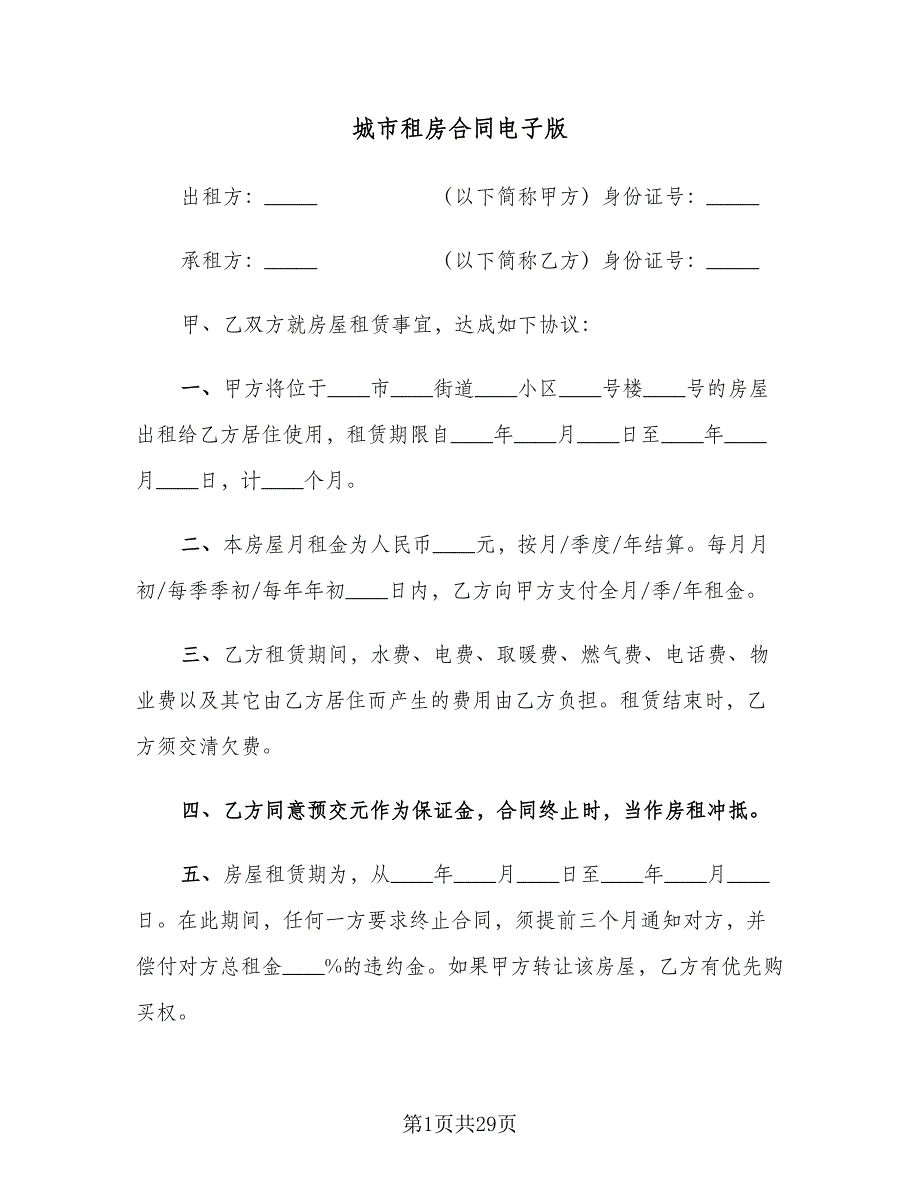 城市租房合同电子版
出租方：_____ （以下简称甲方）身份证号：_____
承租方：_____ （以下简称乙方）身份证号：_____
甲、乙双方就房屋租赁事宜，达成如下协议：
一、甲方将位于____市____街道____小区____号楼____号的房屋
出租给乙方居住使用，租赁期限自____年____月____日至____年____
月____日，计____个月。
二、本房屋月租金为人民币____元，按月/季度/年结算。每月月
初/每季季初/每年年初____日内，乙方向甲方支付全月/季/年租金。
三、乙方租赁期间，水费、电费、取暖费、燃气费、电话费、物
业费以及其它由乙方居住而产生的费用由乙方负担。租赁结束时，乙
方须交清欠费。
四、乙方同意预交元作为保证金，合同终止时，当作房租冲抵。
五、房屋租赁期为，从____年____月____日至____年____月____
日。在此期间，任何一方要求终止合同，须提前三个月通知对方，并
偿付对方总租金____%的违约金。如果甲方转让该房屋，乙方有优先购
买权。
第1页共29页